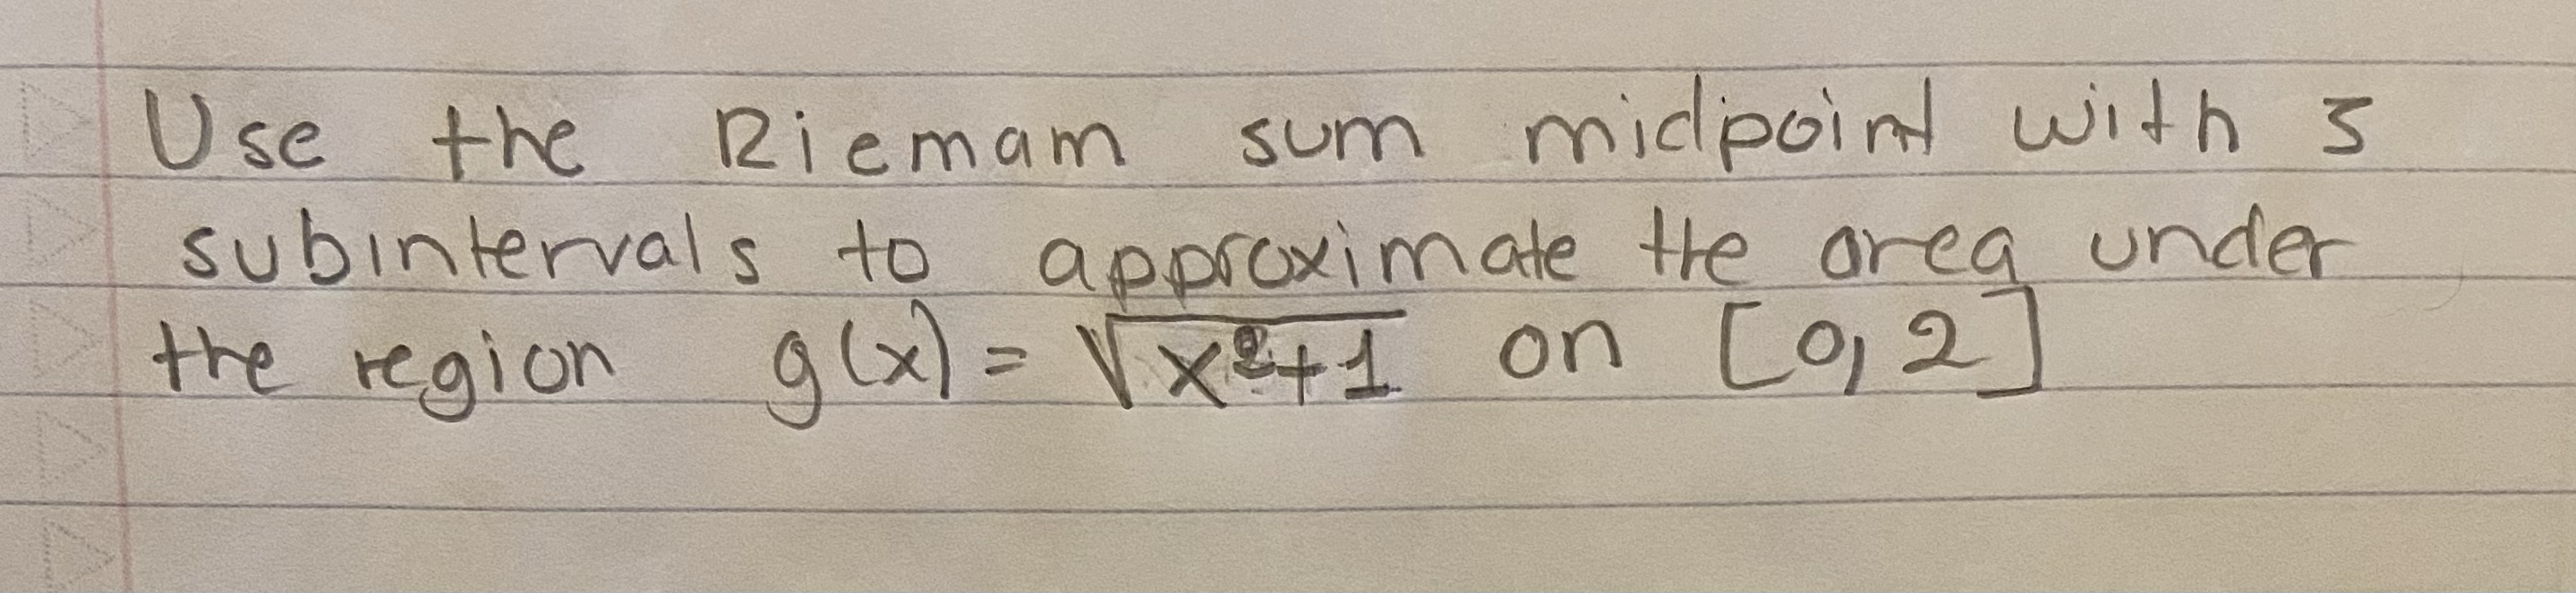 Use the Riemam sum midpoint with 5
subintervals to approximate the area under
the region g(x) = √(x²+1) on [0,2]